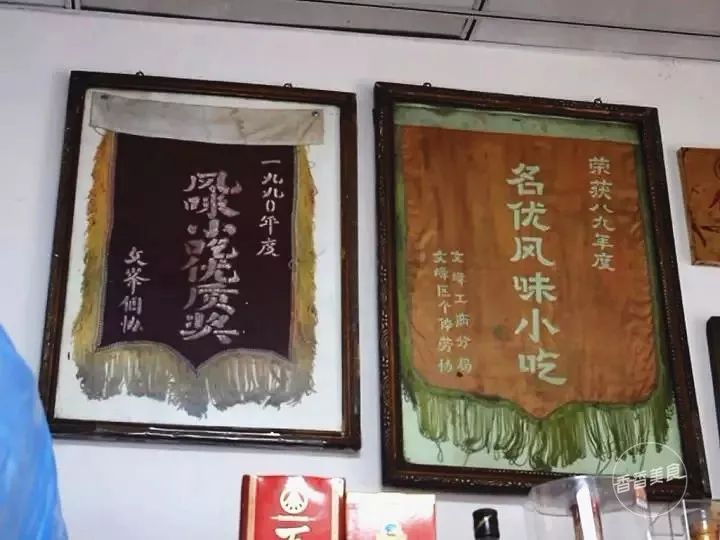 一九九0年度
风味小吃优质奖
文峯個协
荣获八九年度
名优风味小吃
文峰工商分局
文峰区个体劳协
香香美食